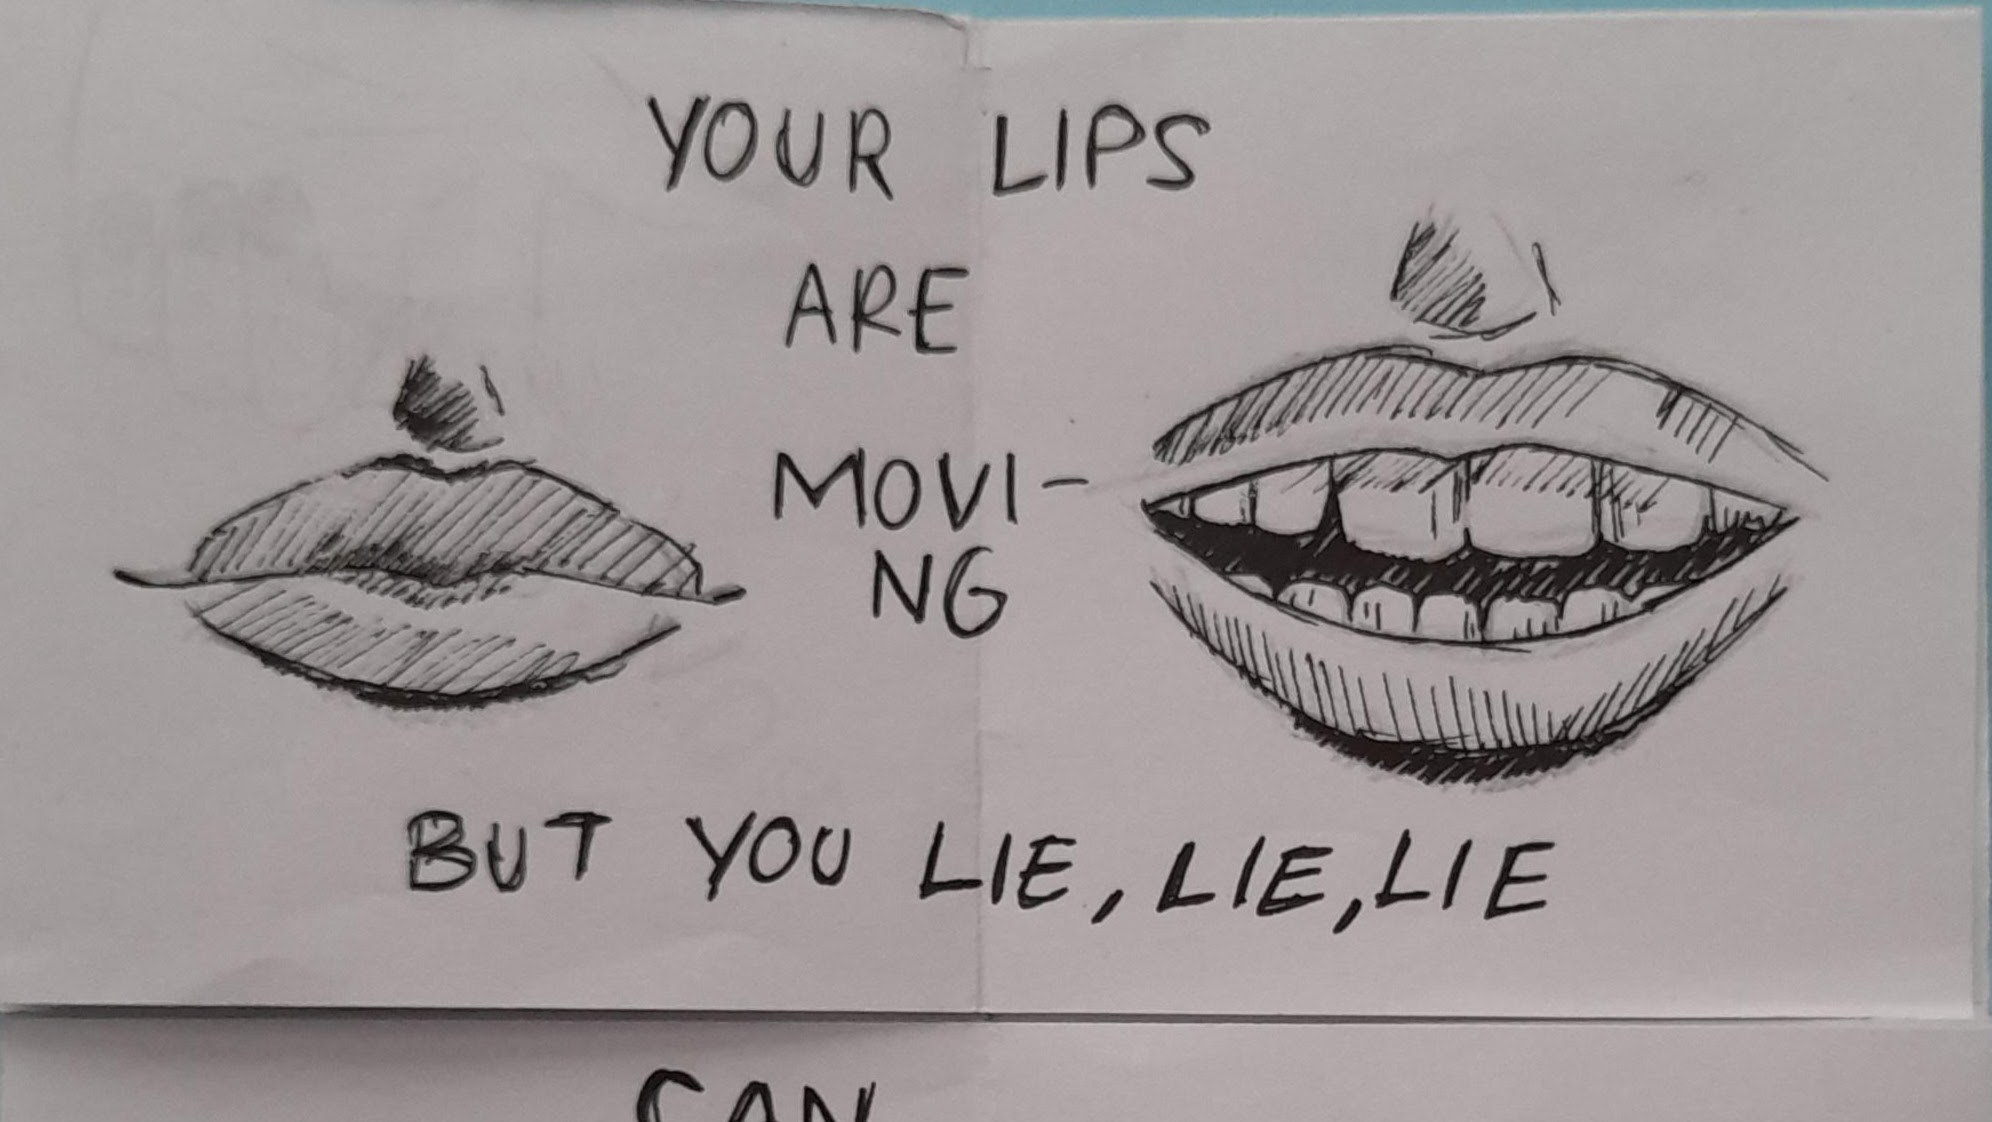 YOUR LIPS
ARE
MOVI-
NG
BUT YOU LIE, LIE, LIE
CAN